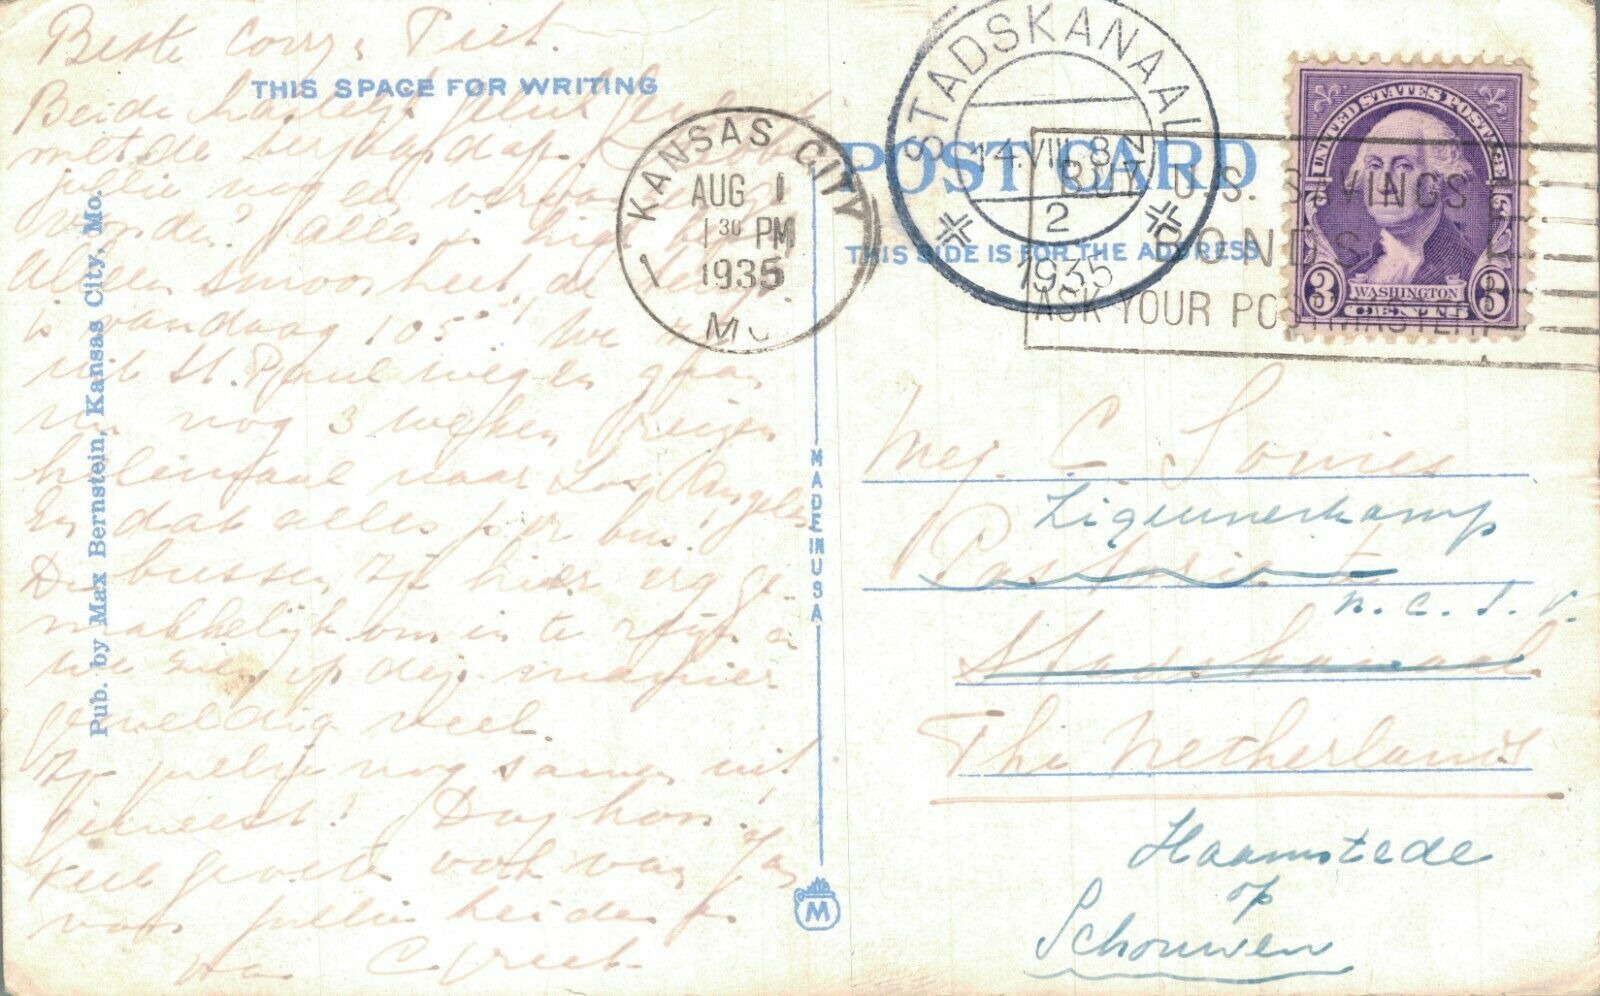 Beste Corry, Piet.
THIS SPACE FOR WRITING
Beide hartelijk
met de
jullie nog en
alles is hier
Alleen smoorheet, de
is vandaag 105° We
uit St. Paul wegen gaan
nu nog 3 weken reizen
helemaal naar Los Angeles
En dat alles per bus.
De bussen zijn hier erg ge-
makkelijk om in te zijn en
we zien op deze manier
geweldig veel.
Zijn jullie nog samen uit
geweest? Dag hoor.
veel groeten ook van
voor jullie beiden
Pub. by Max Bernstein, Kansas City, Mo.
MADE IN USA
M
KANSAS CITY
AUG 1
1 30 PM
1935
MO
STADSKANAAL
14.VIII 8-
2
1935
POST CARD
THIS SIDE IS FOR THE ADDRESS
BUY U.S. SAVINGS
BONDS
ASK YOUR POSTMASTER
UNITED STATES POSTAGE
3 WASHINGTON 3
CENTS
Mej. C.
Zigeunerkamp
Pastorie
N.C.S.V.
Stadskanaal
The Netherlands
Haamstede
op
Schouwen